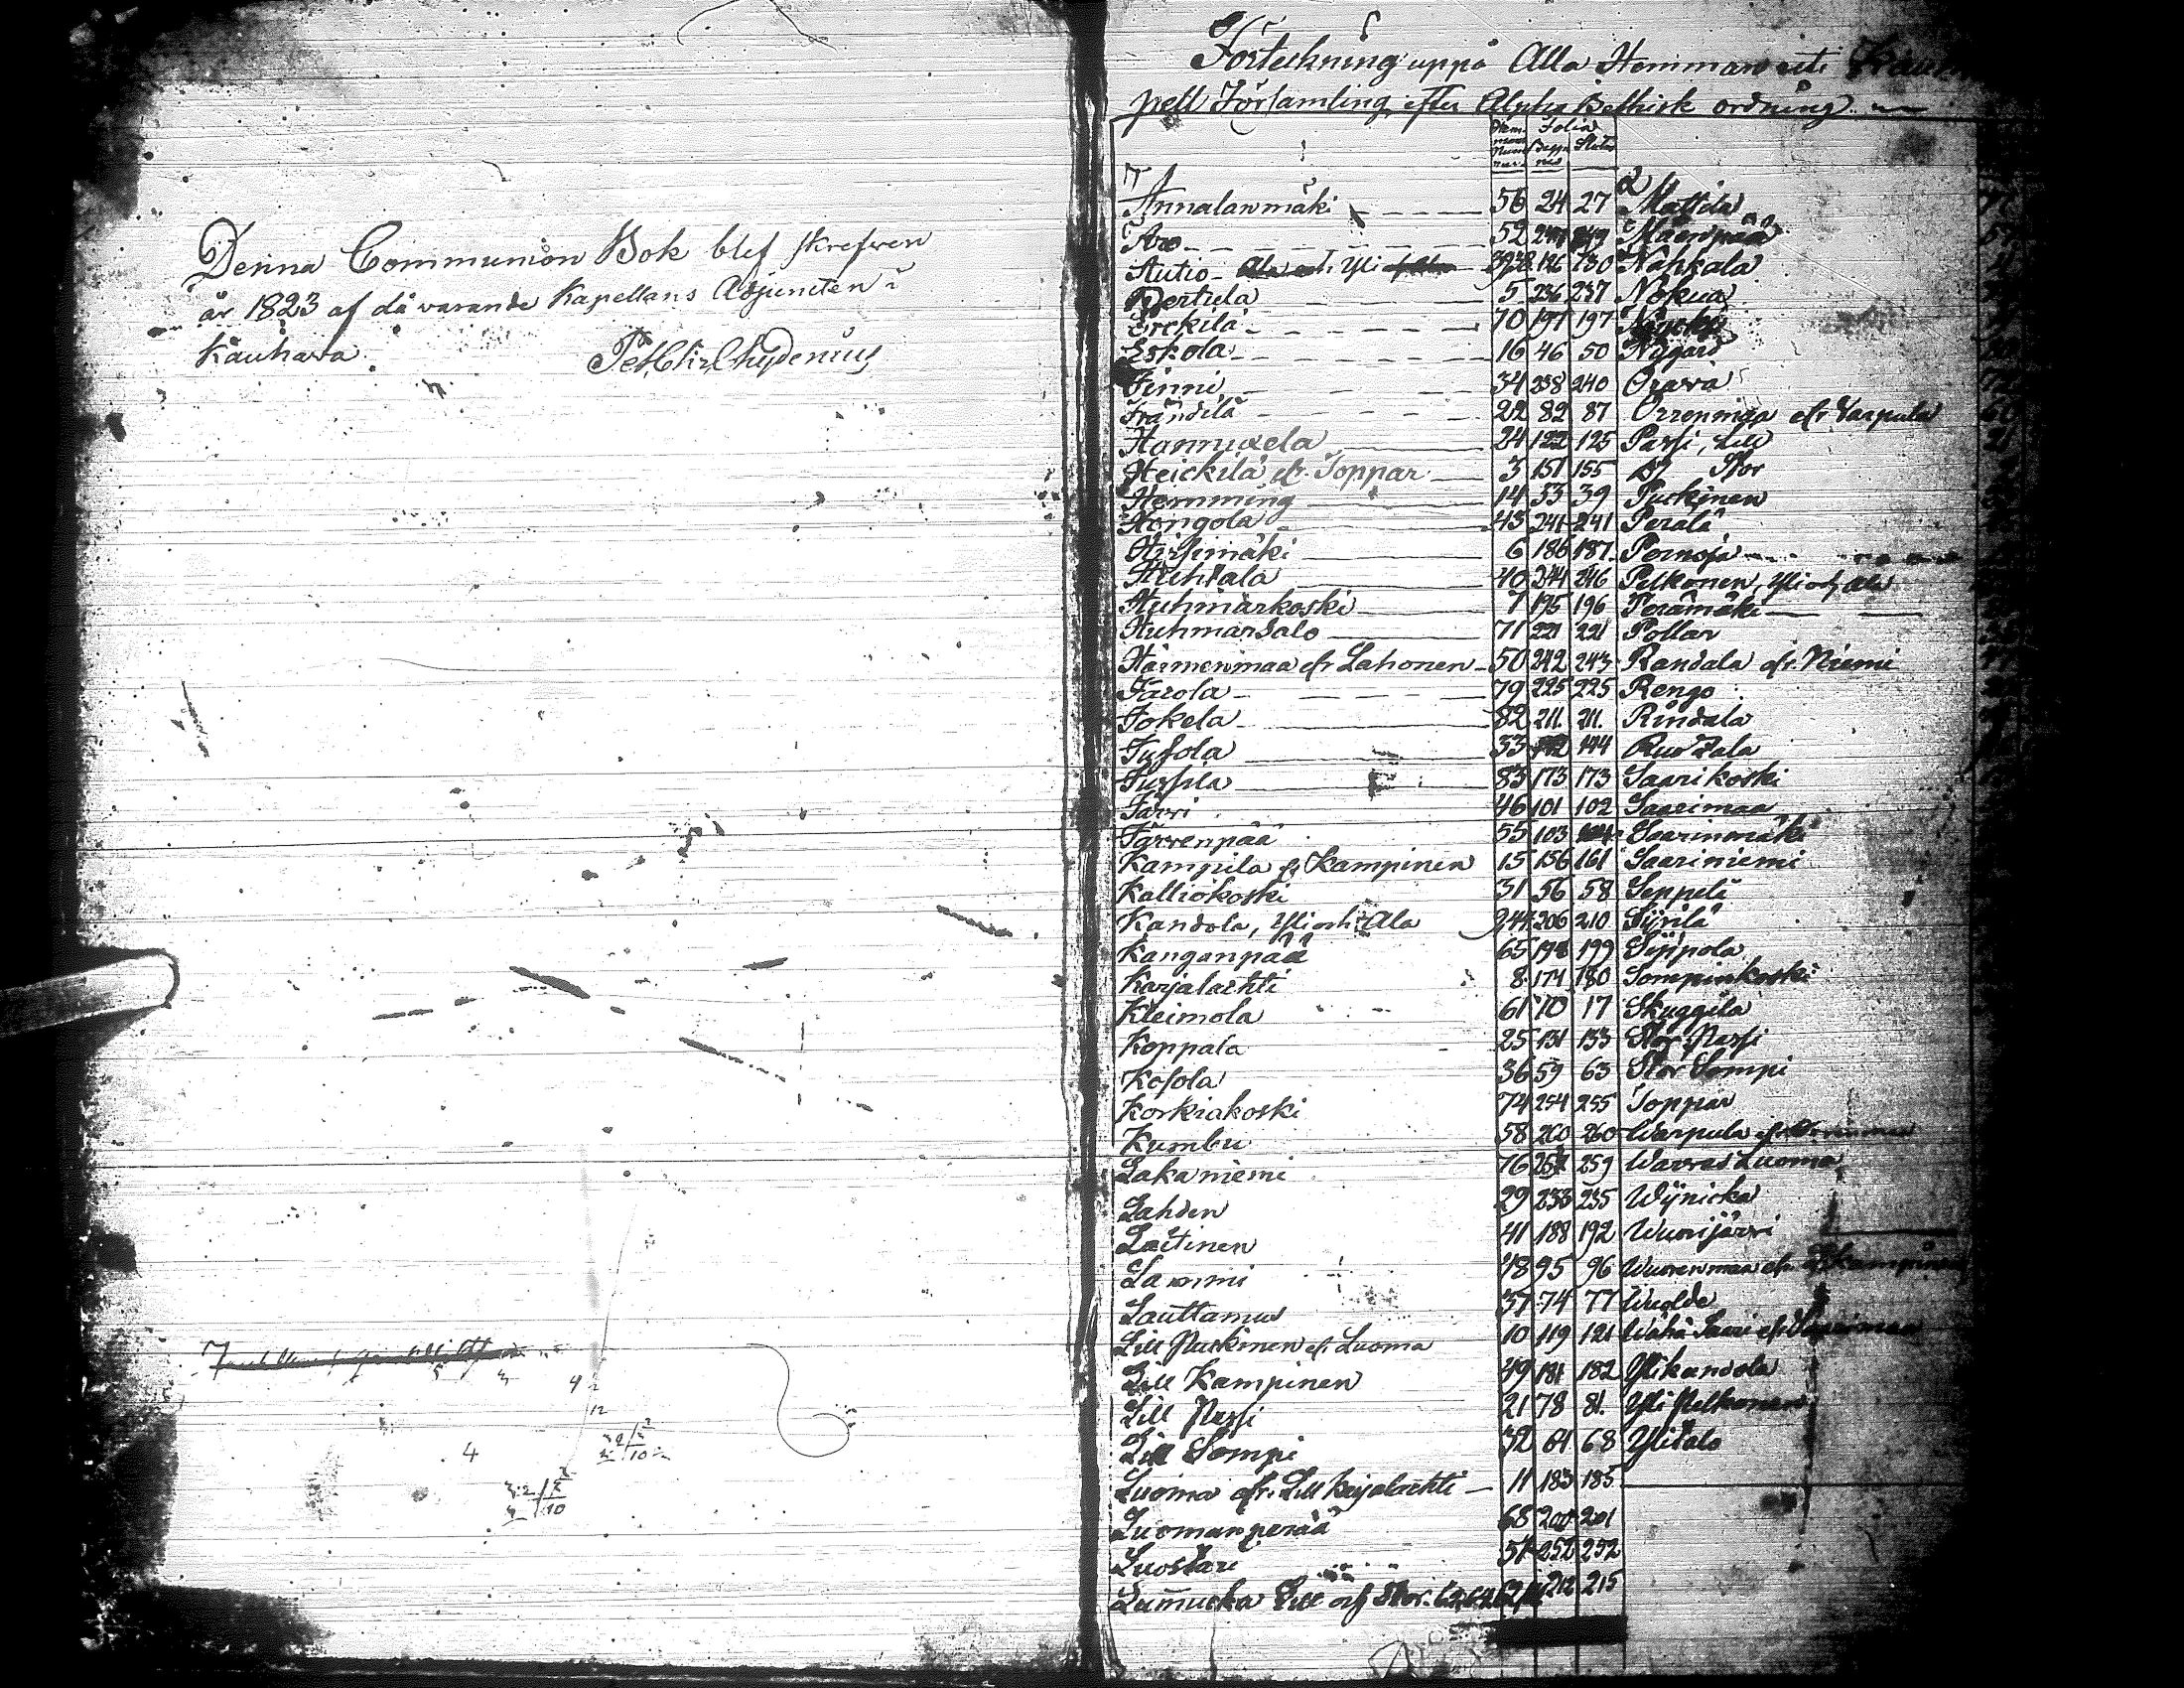 Denna Communion Bok blef skrefven
år 1823 af då varande Kapellans Adjuncten i
Kauhava.
Pet. Chr. Chydenius
4
12
4
10
10
Förteckning uppå Alla Hemman uti
pell Församling, efter Alpha Bethisk ordning
Folia
Annalanmäki 56 24 27 Mattila
Aro 52 249 Mäenpää
Autio Yli 39,38 126 130 Nahkala
Bertula 5 236 237 Nokua
Erckilä 70 197 197
Eskola 16 46 50 Nygård
Finni 34 238 240 Orawa
Frändilä 22 82 87 Orrenmaa cfr. Varpula
Hannuxela 24 122 125 Passi, Lill
Heickilä cfr. Toppar 3 151 155 Stor
Hemming 14 33 39 Puckinen
Hongola 43 241 241 Perälä
Hirsimäki 6 186 187 Pernaja
Huhtala 40 244 246 Pelkonen, Yli och Ala
Huhmarkoski 7 195 196 Perämäki
Huhmarsalo 71 221 221 Pollar
Härmenmaa cfr Lahonen 50 242 243 Randala cfr. Niemi
Järola 79 225 225 Rengo
Jokela 82 211. 211. Rindala
Jussola 33 142 144 Ruotzala
Jussila 83 173 173 Saarikoski
Järvi 46 101 102 Saarimaa
Järvenpää 55 103 Saarinmäki
Kampila cfr Kampinen 15 156 161 Saariniemi
Kalliokoski 31 56 58 Seppelä
Kandola, Yli och Ala 9,44 206 210 Sijrilä
Kanganpää 65 198 199 Sippola
Karjalachti 8 174 180 Sompinkoski
Kleimola 61 10 17 Skuggila
Koppala 25 131 133 Stor Passi
Kosola 36 59 63 Stor Sompi
Korkiakoski 74 254 255 Toppar
Kumbu 58 260 260 Warpula
Lakaniemi 76 257 259 Warras Luoma
Lahden 29 233 235 Wijnicka
Laitinen 41 188 192 Wuorijärvi
Lammi 48 95 96 Wuorenmaa cfr. L. Kampinen
Lauttamus 37 74 77 Wuolde
Lill Puckinen cfr. Luoma 10 119 121 Wähä Saari cfr
Lill Kampinen 49 181 182 Ylikandola
Lill Passi 21 78 81. Yli Pelkonen
Lill Sompi 32 64 68 Ylitalo
Luoma cfr. Lill Karjalachti 11 183 185
Luomanperää 68 200 201
Luostari 51 252 252
Lumucka Lill och Stor. 212 215